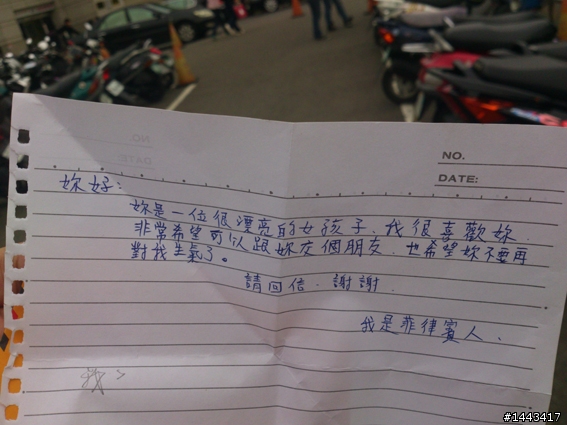 NO.
DATE:
妳好：
妳是一位很漂亮的女孩子、我很喜歡妳.
非常希望可以跟妳友個朋友.也希望妳不要再
對我生氣了。
請回信.謝謝.
我是菲律賓人.
我>
#1443417